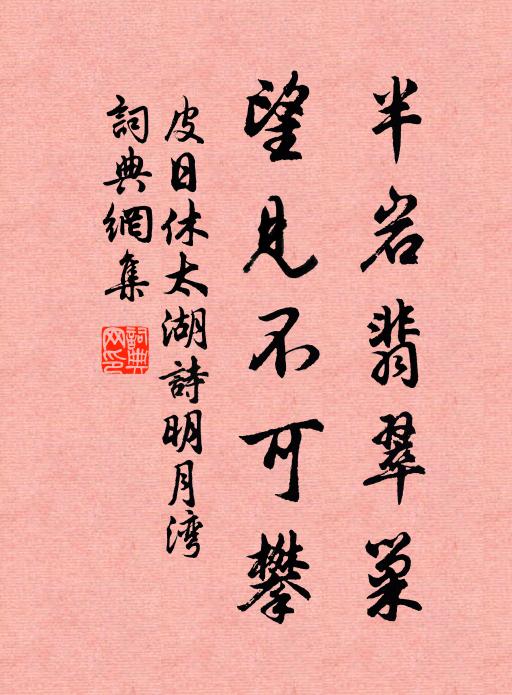 半岩翡翠巢
望見不可攀
皮日休太湖詩明月湾
詞典網集
詞典
网印